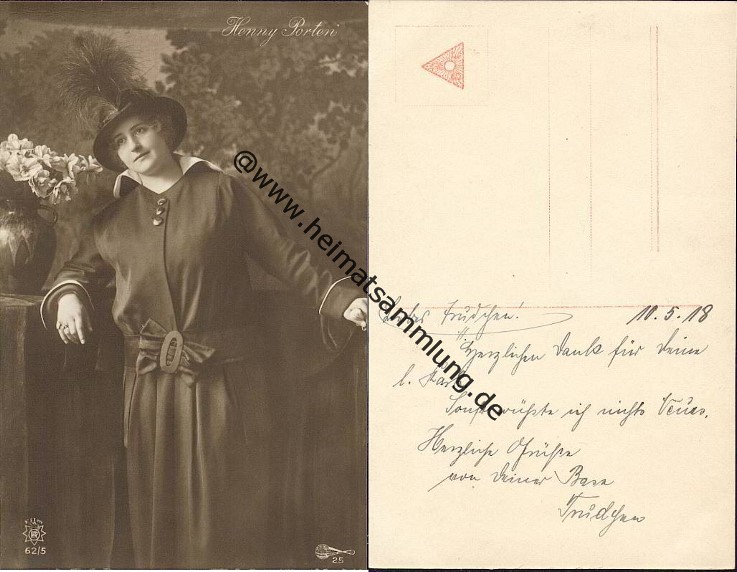 Henny Porten
62/5
25
@www.heimatsammlung.de
Liebes Trudchen! 10.5.18
Herzlichen Dank für Deine
l. Kar
Sonst wüßte ich nichts Neues.
Herzliche Grüße
von Deiner Base
Trudchen